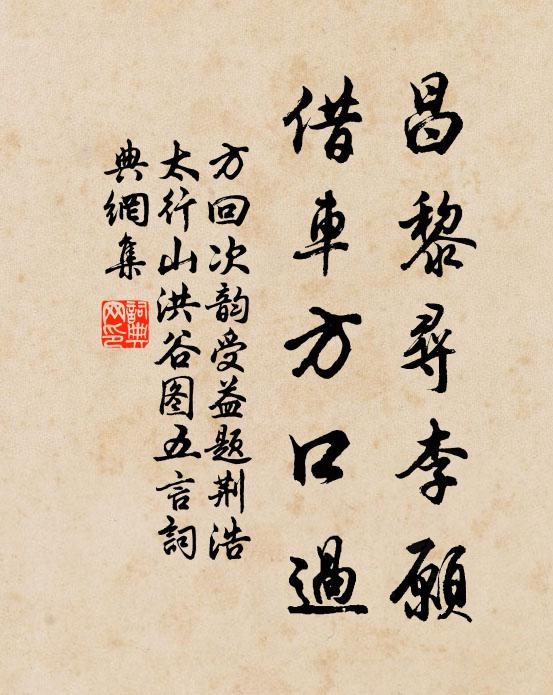 昌黎尋李願
借車方口過
方回次韵受益題荆浩
太行山洪谷图五言詞
典網集
詞典网印